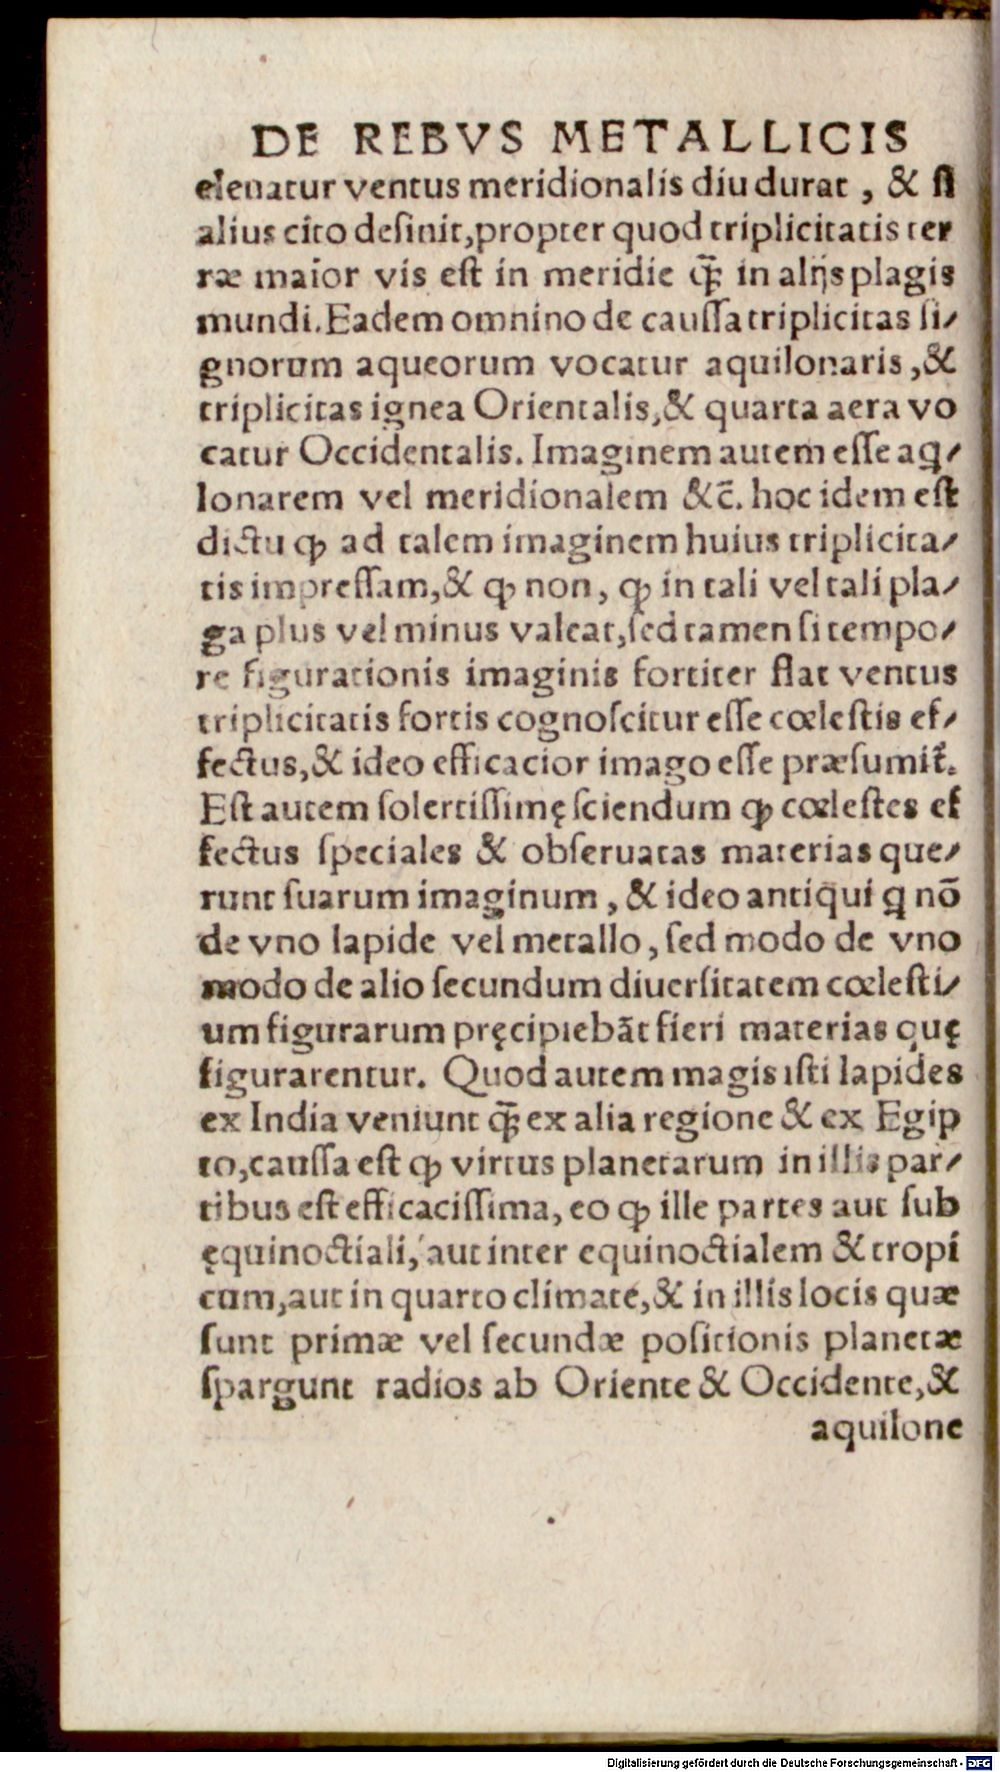 DE REBVS METALLICIS
eleuatur ventus meridionalis diu durat, & ſi
alius cito deſinit, propter quod triplicitatis ter
ræ maior vis eſt in meridie q̃ꝫ in alijs plagis
mundi. Eadem omnino de cauſſa triplicitas ſi⸗
gnorum aqueorum vocatur aquilonaris, &
triplicitas ignea Orientalis, & quarta aera vo
catur Occidentalis. Imaginem autem eſſe aq⸗
lonarem vel meridionalem &c̃. hoc idem eſt
dictu ꝙ ad talem imaginem huius triplicita⸗
tis impreſſam, & ꝙ non, ꝙ in tali vel tali pla⸗
ga plus vel minus valeat, ſed tamen ſi tempo⸗
re figurationis imaginis fortiter flat ventus
triplicitatis fortis cognoſcitur eſſe cœleſtis ef⸗
fectus, & ideo efficacior imago eſſe præſumit̃.
Eſt autem ſolertiſſimę ſciendum ꝙ cœleſtes ef
fectus ſpeciales & obſeruatas materias que⸗
runt ſuarum imaginum, & ideo antiqui q nõ
de vno lapide vel metallo, ſed modo de vno
modo de alio ſecundum diuerſitatem cœleſti⸗
um figurarum pręcipiebãt fieri materias quę
figurarentur. Quod autem magis iſti lapides
ex India veniunt q̃ꝫ ex alia regione & ex Egip
to, cauſſa eſt ꝙ virtus planetarum in illis par⸗
tibus eſt efficaciſſima, eo ꝙ ille partes aut ſub
ęquinoctiali, aut inter equinoctialem & tropi
cum, aut in quarto climate, & in illis locis quæ
ſunt primæ vel ſecundæ poſitionis planetæ
ſpargunt radios ab Oriente & Occidente, &
aquilone
Digitalisierung gefördert durch die Deutsche Forschungsgemeinschaft - DFG